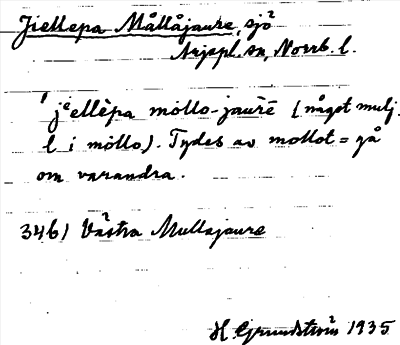 Jiellepa Mållåjaure, sjö²
Arjepl. sn, Norrb. l.
'jᵉellèpa mòllo-jaurē (något mulj.
l i mòllo). Tydes av mollot = gå
om varandra.
346) Västra Mullajaure
H. Grundström 1935